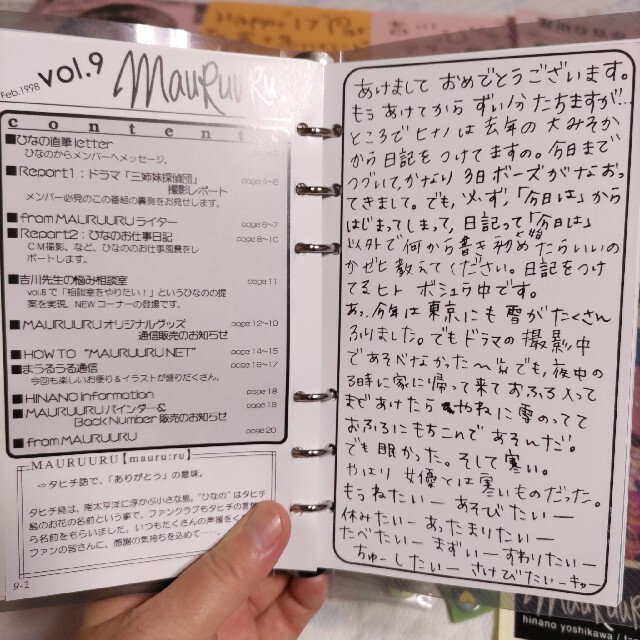 Feb.1998
vol.9
MauRuuRu.
contents
■ひなの直筆letter
ひなのからメンバーへメッセージ。
■Report1：ドラマ「三姉妹探偵団」
撮影レポート
page 4~6
メンバー必見のこの番組の裏側をお見せします。
■from MAURUURUライター
page 6~7
■Report2：ひなのお仕事日記
page 8~10
CM撮影、など、ひなののお仕事風景をレ
ポートします。
■吉川先生の悩み相談室
page 11
vol.8で「相談室をやりたい！」というひなのの提
案を実現。NEWコーナーの登場です。
■MAURUURUオリジナルグッズ
page 12~13
通信販売のお知らせ
■HOW TO “MAURUURU NET”
page 14~15
■まうるうる通信
page 16~17
今回も楽しいお便り＆イラストが盛りだくさん。
■HINANO information
page 18
■MAURUURUバインダー＆
page 19
Back Number 販売のお知らせ
■from MAURUURU
page 20
MAURUURU【mauru:ru】
⇨タヒチ語で、「ありがとう」の意味。
タヒチ島は、南太平洋に浮かぶ小さな島。“ひなの”はタヒチ
島のお花の名前という事で、ファンクラブもタヒチの言葉か
ら名前をもらいました。いつもたくさんの声援をく
ファンの皆さんに、感謝の気持ちを込めて……
9-2
あけまして おめでとうございます。
もうあけてから ずい分たちますが…
ところでヒナノは去年の大みそか
から日記をつけてますの。今日まで
つづいて、かなり3日ボーズがなおっ
てきまして。でも、必ず、「今日は」から
はじまってしまって、日記って「今日は」
以外で何から書き初めたらいいの
かぜヒ教えてください。日記をつけ
てるヒト ボシュウ中です。
あっ、今年は東京にも雪がたくさん
ふりました。でもドラマの撮影中
であそべなかった〜 でも、夜中の
3時に家に帰って来ておふろ入って
まどあけたら やねに雪のってて
おふろにもちこんであそんだ。
でも眠かった。そして寒い。
やはり女優とは寒いものだった。
もうねたいー あそびたいー
休みたいー あったまりたいー
たべたいー まずいー すわりたいー
ちゅーしたいー さけびたいーキャー
MauRuuRu
hinano yoshikawa